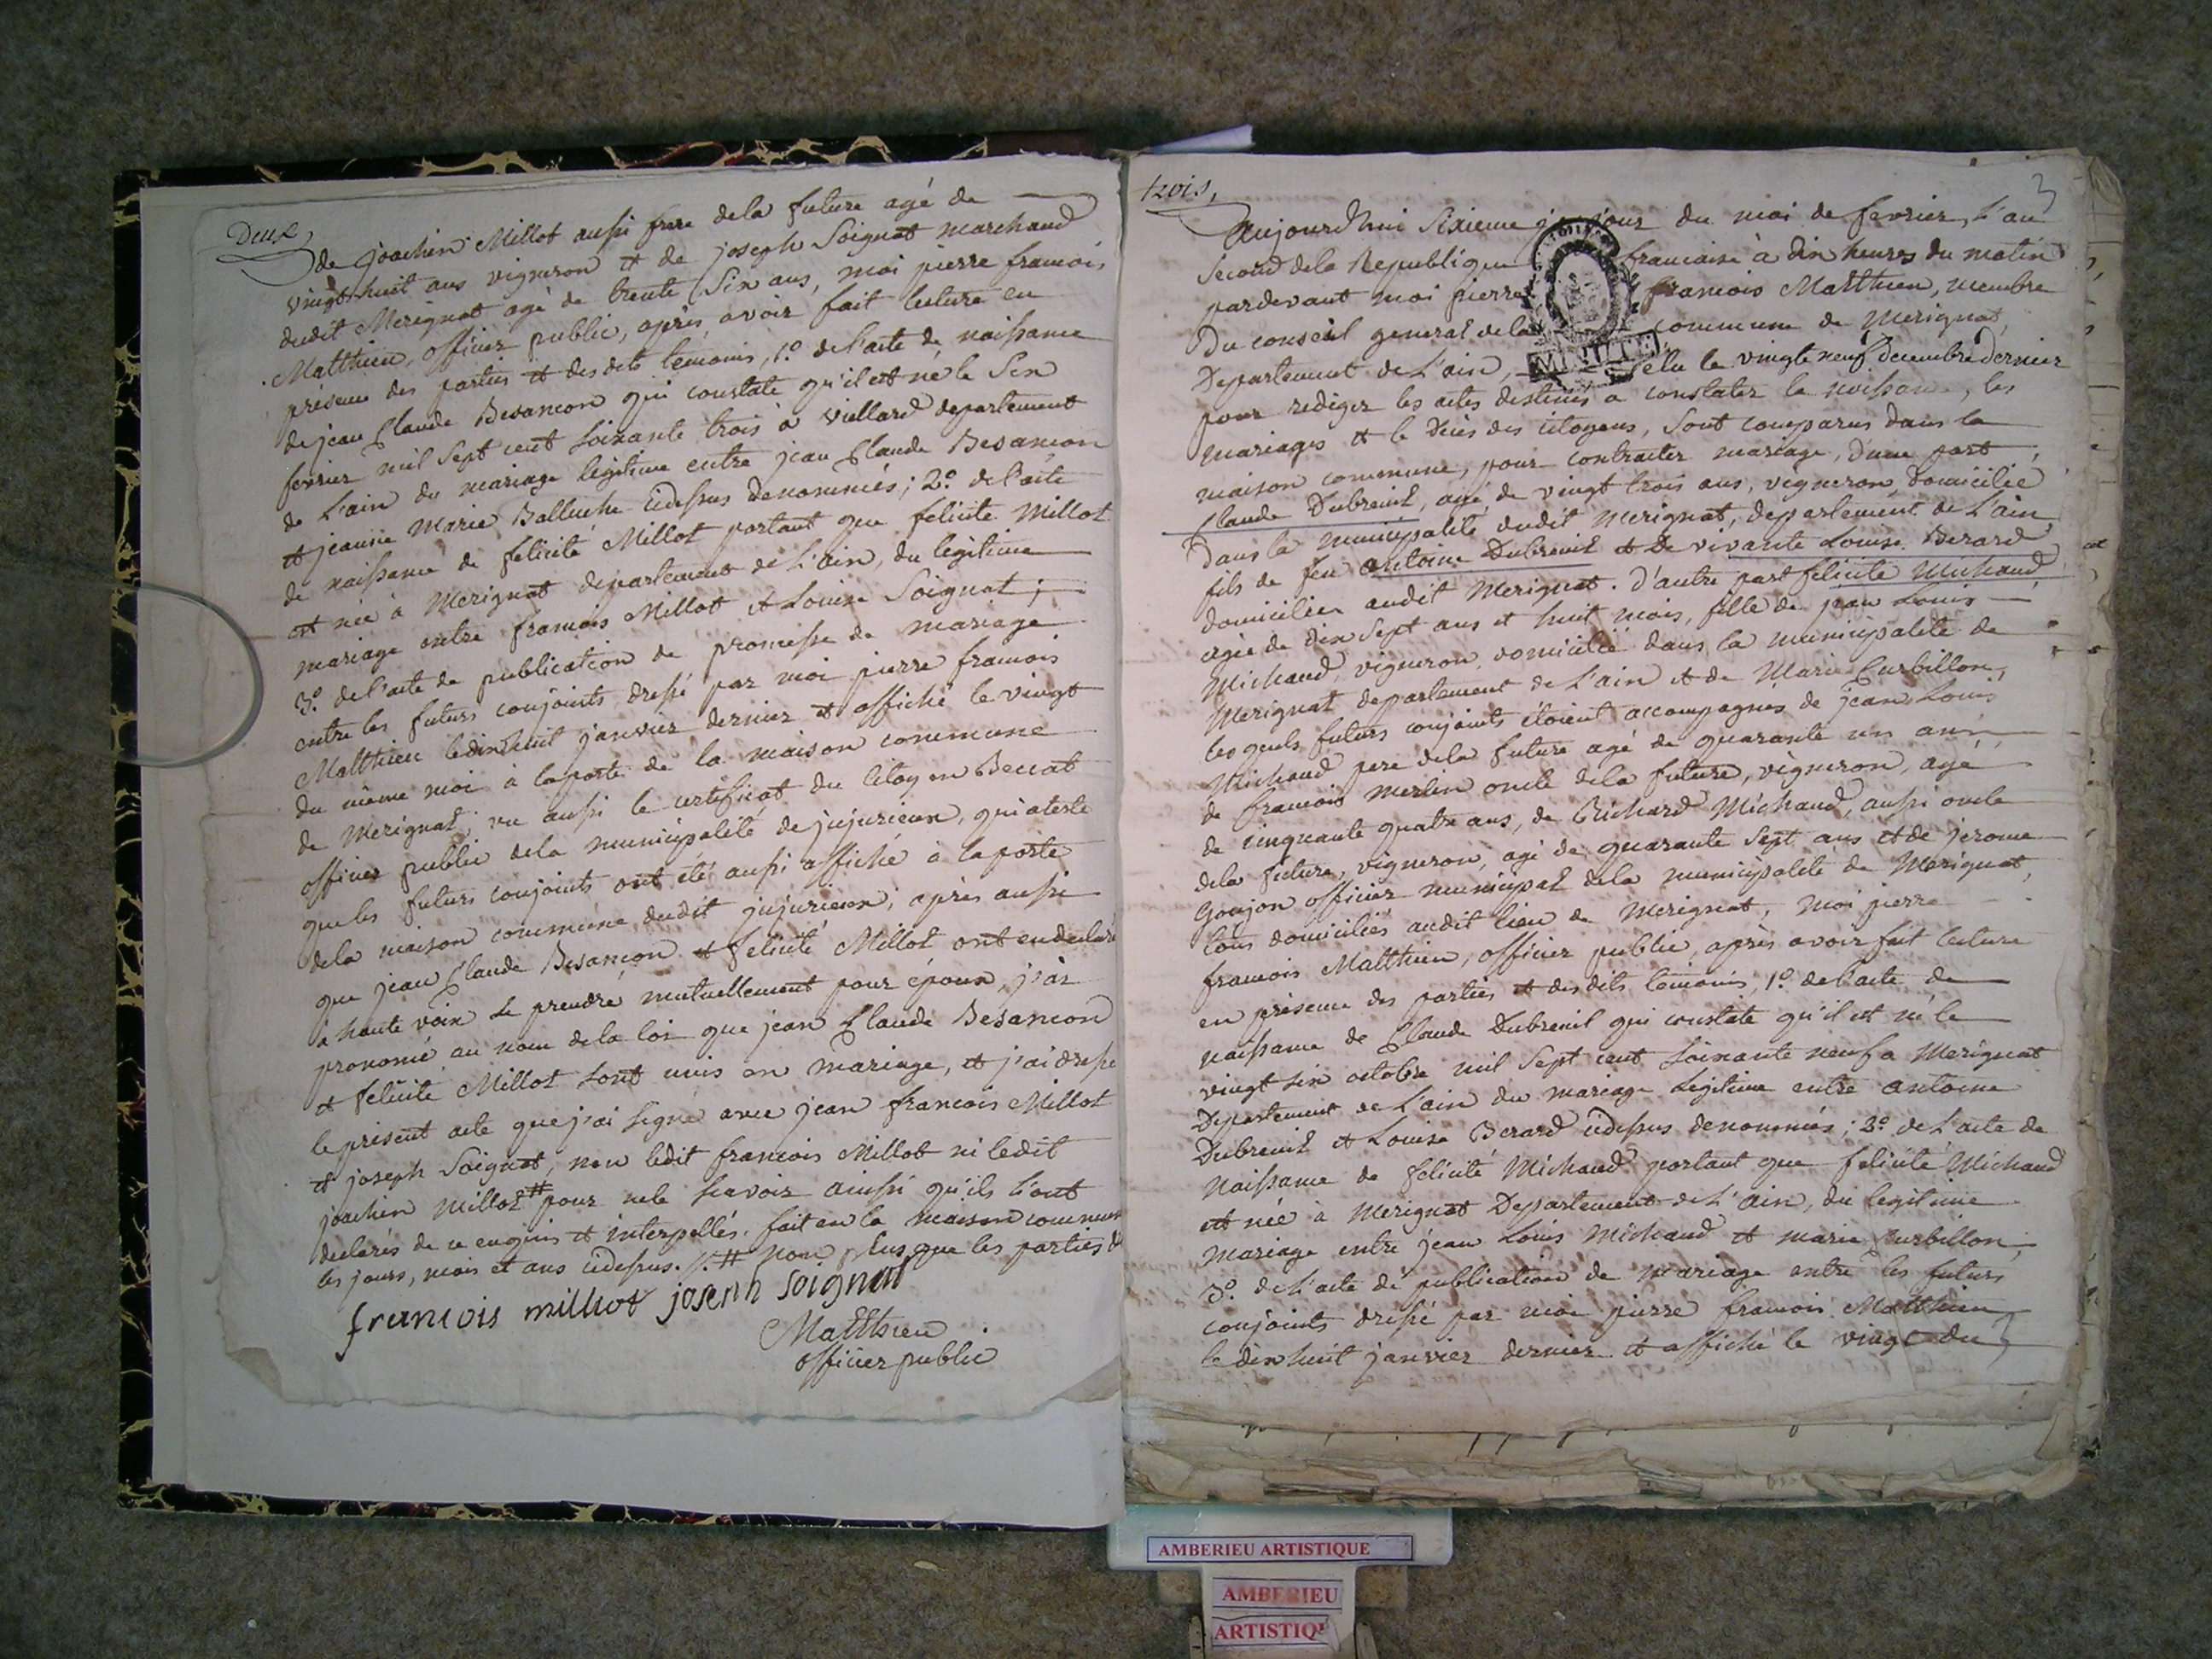 Deux,
de joachin Millot aussi frere dela future agé de
vingt-huit ans vigneron et de joseph Soignat marchand
dudit Merignat agé de trente Six ans, moi pierre francois
Matthieu, officier public, après avoir fait lecture en
présence des parties et des dits temoins, 1.º de l'acte de naissance
de jean Claude Besancon qui constate qu'il est né le Six
fevrier mil Sept cent Soixante trois à viellard departement
de L'ain du mariage legitime entre jean Claude Besancon
et jeanne Marie Balluche cidessus denommés; 2.º de l'acte
de naissance de felicité Millot portant que felicite Millot
est née à Merignat departement de L'ain, du legitime
mariage entre francois Millot et Louise Soignat;
3.º de l'acte de publication de promesse de mariage
entre les futurs conjoints dressé par moi pierre francois
Matthieu ledixhuit janvier dernier et affiché le vingt
du même moi à la porte de la maison commune
de Merignat, vu aussi le certificat du Citoyen
officier public dela municipalité de jujurieux, qui ateste
que les futurs conjoints ont été aussi affiché à la porte
dela maison commune dudit jujurieux; après aussi
que jean Claude Besancon et felicité Millot ont eu declaré
à haute voix se prendre mutuellement pour époux, j'ai
prononcé au nom dela loi que jean Claude Besancon
et felicité Millot sont unis en mariage, et j'ai dressé
le présent acte que j'ai signé avec jean francois Millot
et joseph Soignat, non ledit francois Millot ni ledit
joachin Millot # pour ne le scavoir ainsi qu'ils l'ont
declarés de ce enquis et interpellés. fait en la maison commune
les jours, mois et ans cidessus. # non plus que les parties
francois milliot joseph Soignat
Matthieu
officier public
trois,
3
Aujourd'hui Sixieme jour du moi de fevrier, L'an
Second dela Republique francaise à dix heures du matin
pardevant moi pierre francois Matthieu, membre
Du conseil general dela commune de Merignat,
Departement de L'ain, élu le vingt neuf decembre dernier
pour rediger les actes destinés a constater la naissance, les
mariages et le Deces des citoyens, Sont comparus dans la
maison commune, pour contracter mariage, d'une part,
Claude Dubreuil, agé de vingt trois ans, vigneron, domicilié
Dans la municipalité dudit Merignat, departement de L'ain,
fils de feu Antoine Dubreuil et De vivante Louise Berard
domiciliée audit Merignat. D'autre part felicite Michaud
agée de dix Sept ans et huit mois, fille de jean Louis
Michaud, vigneron, domicilié dans la municipalité de
Merignat departement de L'ain et de Marie Curbillon,
lesquels futurs conjoints étoient accompagnés de jean Louis
Michaud pere dela future agé de quarante un ans,
de francois Merlin oncle dela future, vigneron, agé
de cinquante quatre ans, de Michaud, aussi oncle
dela future, vigneron, agé de quarante Sept ans et de jerome
Goujon officier municipal dela municipalité de Merignat,
tous domiciliés audit lieu de Merignat, moi pierre
francois Matthieu, officier public, après avoir fait lecture
en présence des parties et des dits temoins, 1.º de l'acte de
naissance de Claude Dubreuil qui constate qu'il est né le
vingt six octobre mil Sept cent Soixante neuf a Merignat
Departement de L'ain du mariage legitime entre Antoine
Dubreuil et Louise Berard cidessus denommés; 2.º de L'acte de
Naissance de felicité Michaud portant que felicité Michaud
est née à Merignat Departement de L'ain, du legitime
mariage entre jean Louis Michaud et marie Curbillon;
3.º de L'acte de publication de mariage entre les futurs
conjoints dressé par moi pierre francois Matthieu
le dix huit janvier dernier et affiché le vingt du
AMBERIEU ARTISTIQUE
AMBERIEU
ARTISTIQ